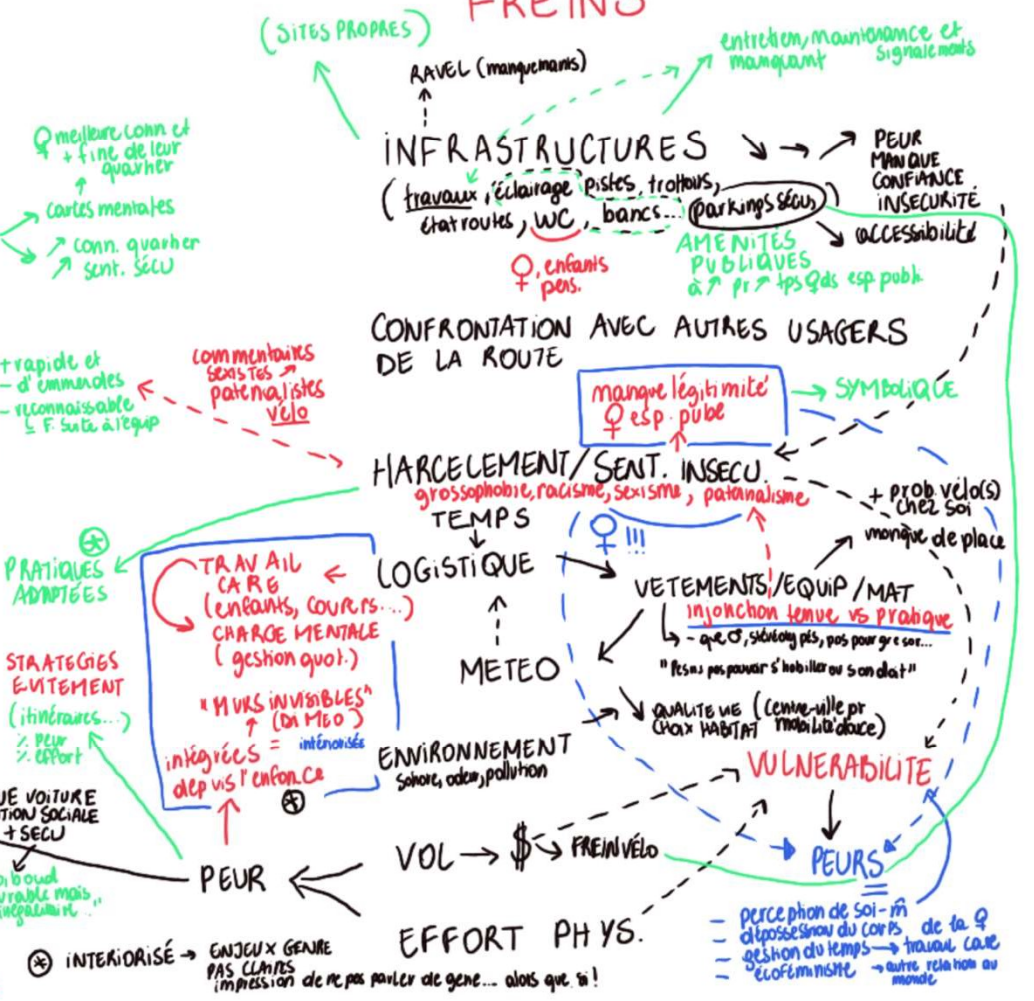 FREINS
(SITES PROPRES)
RAVEL (manquements)
entretien, maintenance et
manquant signalements
♀ meilleure conn et
+ fine de leur
quartier
cartes mentales
↗ conn. quartier
↗ sent. sécu
INFRASTRUCTURES
(travaux, éclairage, pistes, trottoirs,
état routes, WC, bancs... parkings sécu)
PEUR
MANQUE
CONFIANCE
INSECURITÉ
ACCESSIBILITÉ
♀, enfants
pers.
AMENITÉS
PUBLIQUES
à ↗ pr ↗ tps ♀ ds esp. publi
CONFRONTATION AVEC AUTRES USAGERS
DE LA ROUTE
+ rapide et
- d'emmerdes
- reconnaissable
↳ F. suite à l'équip
commentaires
sexistes ↗
paternalistes
vélo
manque légitimité
♀ esp. public
→ SYMBOLIQUE
HARCELEMENT/SENT. INSECU.
grossophobie, racisme, sexisme, paternalisme
♀ !!!
+ prob vélo(s)
chez soi
manque de place
TEMPS
LOGISTIQUE
METEO
PRATIQUES
ADAPTÉES
TRAVAIL
CARE
(enfants, courses...)
CHARGE MENTALE
(gestion quot.)
"MURS INVISIBLES"
(DI MEO)
intégrées = intériorisés
depuis l'enfance
VETEMENTS/EQUIP/MAT
injonction tenue vs pratique
- que ♂, stéréotypés, pas pour
pas pouvoir s'habiller
QUALITE VIE (centre-ville pr
CHOIX HABITAT mobilité douce)
STRATEGIES
EVITEMENT
(itinéraires...)
% peur
% effort
ENVIRONNEMENT
sonore, odeur, pollution
VULNERABILITE
VOITURE
TION SOCIALE
+ SECU
VOL → $ ↘ FREIN VÉLO
PEUR
PEURS
EFFORT PHYS.
- perception de soi-m̂
- dépossession du corps de la ♀
- gestion du temps → travail care
- écoféministe → autre relation au
monde
INTERIORISÉ → ENJEUX GENRE
PAS CLAIRS
impression de ne pas parler de genre... alors que si!